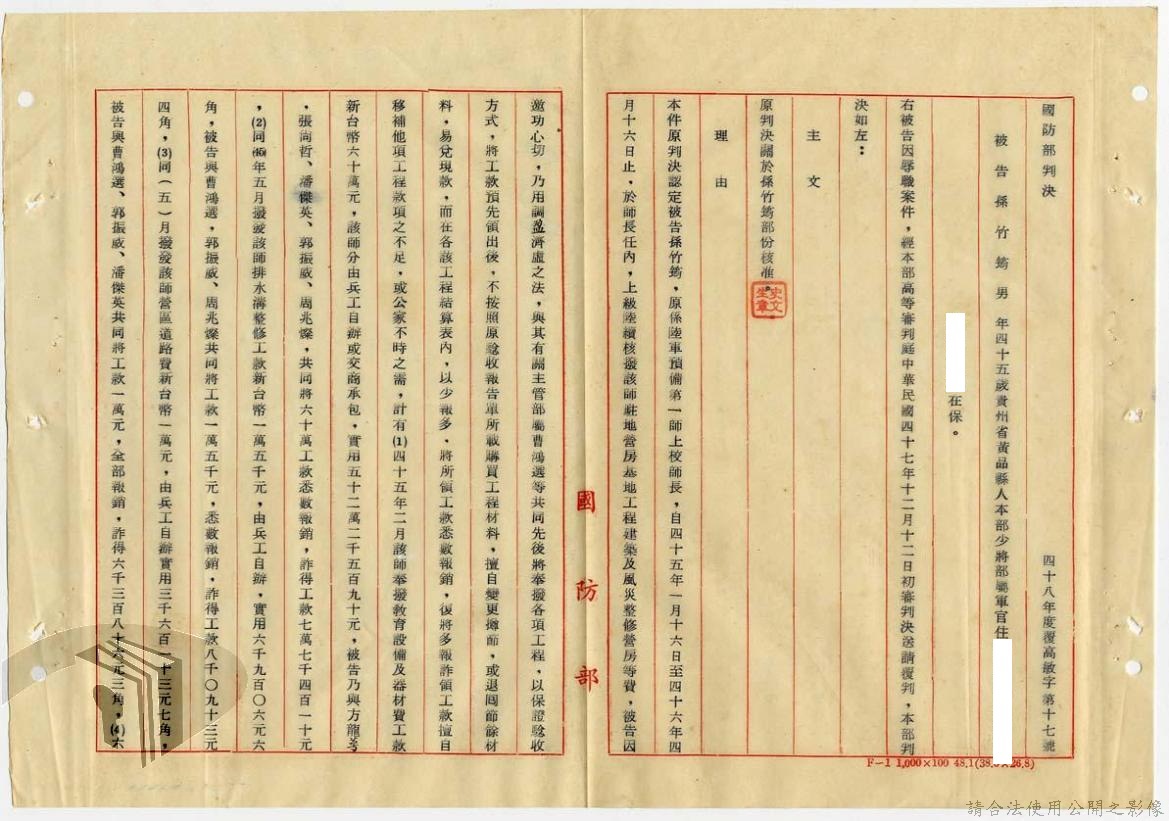 國防部判決
四十八年度覆高敏字第十七號
被告孫竹筠 男 年四十五歲貴州省黃品縣人本部少將部屬軍官住
在保。
右被告因辱職案件,經本部高等審判庭中華民國四十七年十二月十二日初審判決送請覆判,本部判
決如左:
主文
原判決關於孫竹筠部份核准。
理由
本件原判決認定被告孫竹筠,原係陸軍預備第一師上校師長,自四十五年一月十六日至四十六年四
月十六日止,於師長任內,上級陸續核撥該師駐地營房基地工程建築及風災整修營房等費,被告因
邀功心切,乃用調盈濟虛之法,與其有關主管部屬曹鴻選等共同先後將奉撥各項工程,以保證驗收
方式,將工款預先領出後,不按照原驗收報告單所載購買工程材料,擅自變更撙節,或退囘節餘材
料,易兌現款,而在各該工程結算表內,以少報多,將所領工款悉數報銷,復將多報詐領工款擅自
移補他項工程款項之不足,或公家不時之需,計有(1)四十五年二月該師奉撥敎育設備及器材費工款
新台幣六十萬元,該師分由兵工自辦或交商承包,實用五十二萬二千五百九十元,被告乃與方龍等
、張尚哲、潘傑英、郭振威、周兆燦,共同將六十萬工款悉數報銷,詐得工款七萬七千四百一十元
,(2)同(45)年五月撥發該師排水溝整修工款新台幣一萬五千元,由兵工自辦,實用六千九百〇六元六
角,被告與曹鴻選,郭振威、周兆燦共同將工款一萬五千元,悉數報銷,詐得工款八千〇九十三元
四角,(3)同(五)月撥發該師營區道路費新台幣一萬元,由兵工自辦實用三千六百一十三元七角,
被告與曹鴻選、郭振威、潘傑英共同將工款一萬元,全部報銷,詐得六千三百八十六元三角,(4)六
國防部
F-1 1,000×100 48.1(38.
26.8)
請合法使用公開之影像